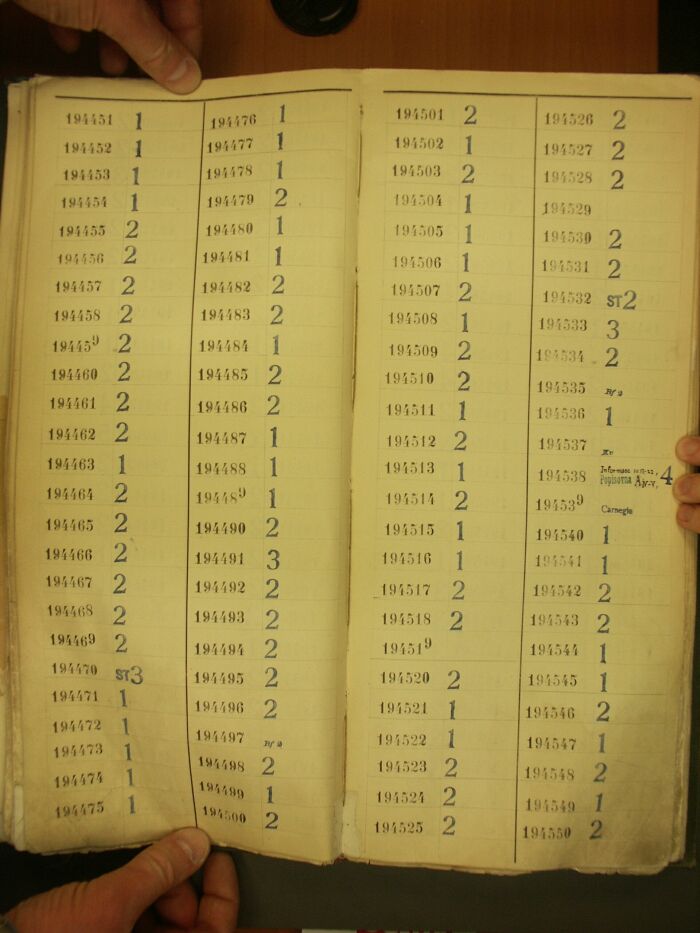 194451 1
194452 1
194453 1
194454 1
194455 2
194456 2
194457 2
194458 2
194459 2
194460 2
194461 2
194462 2
194463 1
194464 2
194465 2
194466 2
194467 2
194468 2
194469 2
194470 ST3
194471 1
194472 1
194473 1
194474 1
194475 1
194476 1
194477 1
194478 1
194479 2
194480 1
194481 1
194482 2
194483 2
194484 1
194485 2
194486 2
194487 1
194488 1
194489 1
194490 2
194491 3
194492 2
194493 2
194494 2
194495 2
194496 2
194497
194498 2
194499 1
194500 2
194501 2
194502 1
194503 2
194504 1
194505 1
194506 1
194507 2
194508 1
194509 2
194510 2
194511 1
194512 2
194513 1
194514 2
194515 1
194516 1
194517 2
194518 2
194519
194520 2
194521 1
194522 1
194523 2
194524 2
194525 2
194526 2
194527 2
194528 2
194529
194530 2
194531 2
194532 ST2
194533 3
194534 2
194535
194536 1
194537
194538 4
194539 Carnegie
194540 1
194541 1
194542 2
194543 2
194544 1
194545 1
194546 2
194547 1
194548 2
194549 1
194550 2